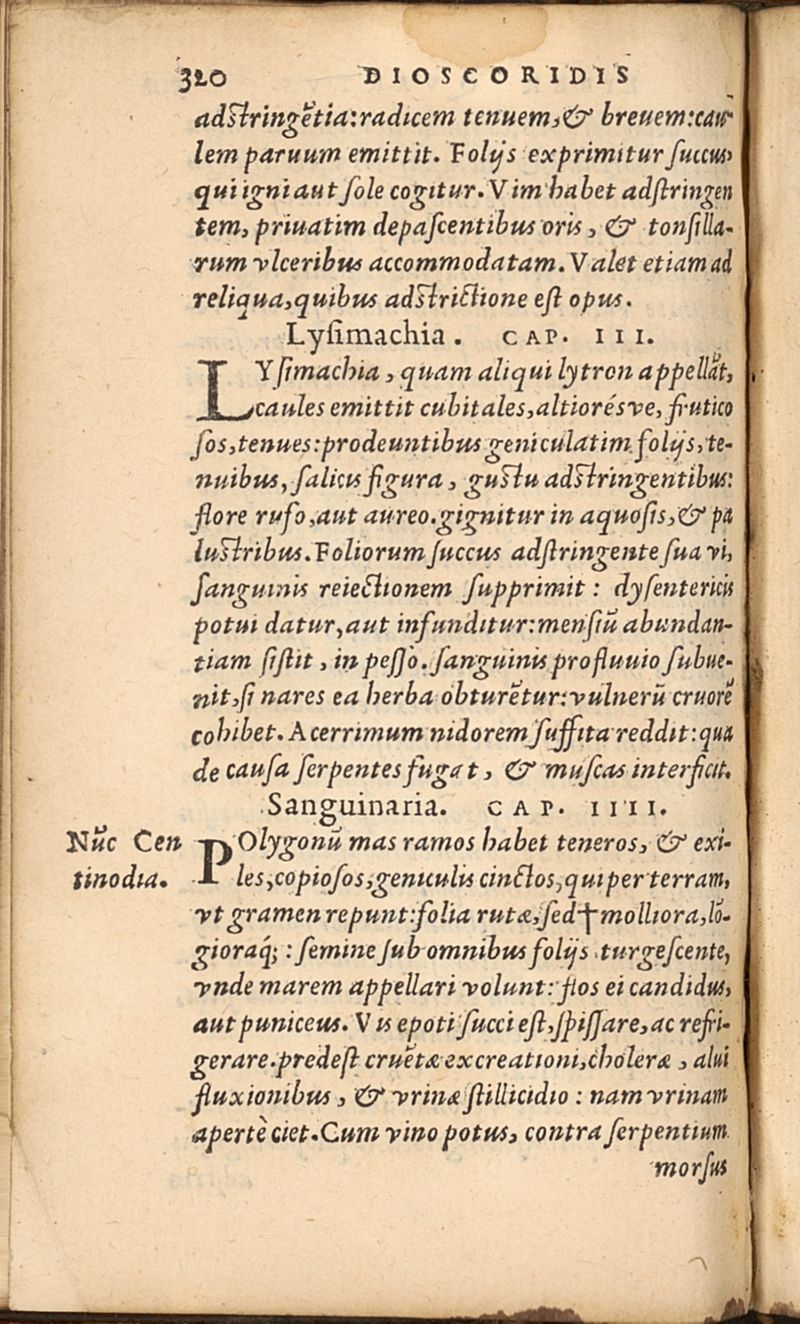 320 DIOSCORIDIS
adſtringẽtia: radicem tenuem, & breuem: cau
lem paruum emittit. Folijs exprimitur ſuccus,
qui igni aut ſole cogitur. Vim habet adſtringen
tem, priuatim depaſcentibus oris, & tonſilla-
rum vlceribus accommodatam. Valet etiam ad
reliqua, quibus adſtrictione eſt opus.
Lyſimachia. CAP. III.
LYſimachia, quam aliqui lytron appellãt,
caules emittit cubitales, altiorésve, frutico
ſos, tenues: prodeuntibus geniculatim folijs, te-
nuibus, ſalicis figura, guſtu adſtringentibus:
flore rufo, aut aureo. gignitur in aquoſis, & pa
luſtribus. Foliorum ſuccus adſtringente ſua vi,
ſanguinis reiectionem ſupprimit: dyſentericis
potui datur, aut infunditur: menſiũ abundan-
tiam ſiſtit, in peſſo. ſanguinis profluuio ſubue-
nit, ſi nares ea herba obturẽtur: vulnerũ cruorẽ
cohibet. Acerrimum nidorem ſuffita reddit: qua
de cauſa ſerpentes fugat, & muſcas interficit.
Sanguinaria. CAP. IIII.
Nũc Cen
tinodia.
POlygonũ mas ramos habet teneros, & exi-
les, copioſos, geniculis cinctos, qui per terram,
vt gramen repunt: folia rutæ, ſed † molliora, lõ-
gioraq́;: ſemine ſub omnibus folijs turgeſcente,
vnde marem appellari volunt: flos ei candidus,
aut puniceus. Vis epoti ſucci eſt, ſpiſſare, ac refri-
gerare. predeſt cruẽtæ excreationi, choleræ, alui
fluxionibus, & vrinæ ſtillicidio: nam vrinam
apertè ciet. Cum vino potus, contra ſerpentium
morſus